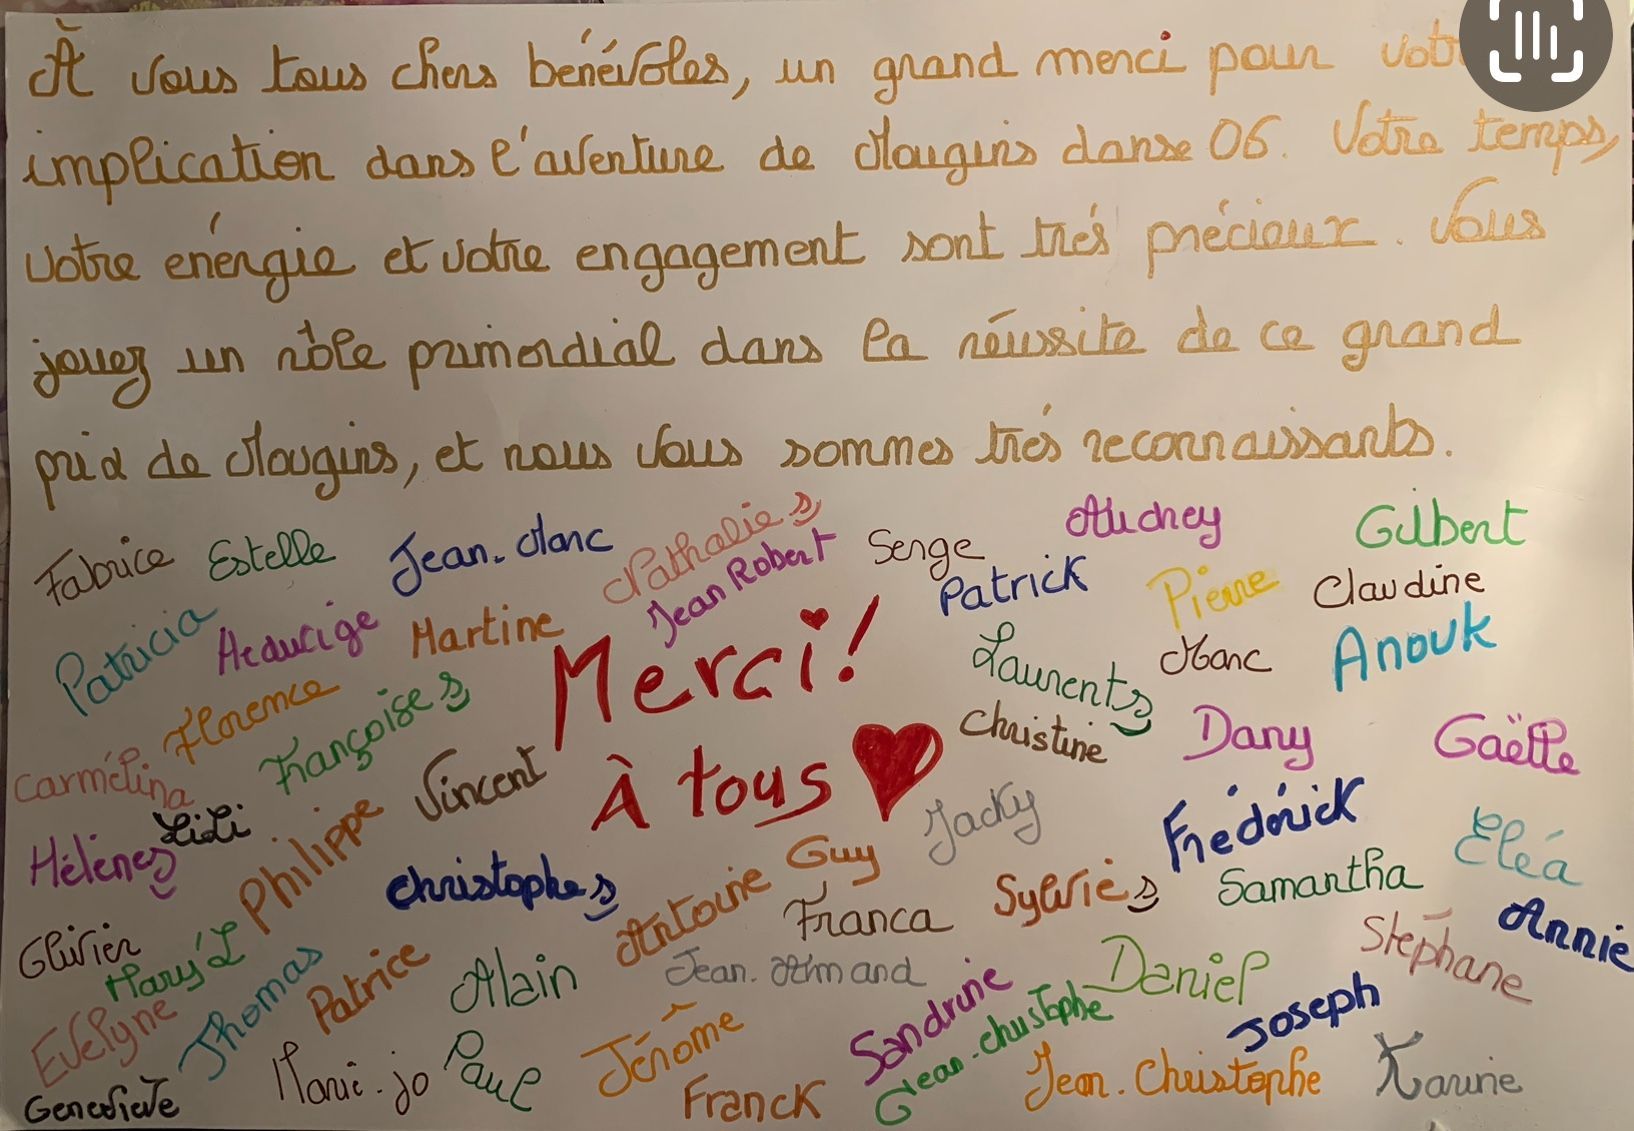 À vous tous chers bénévoles, un grand merci pour
implication dans l'aventure de Mougins danse 06. Votre temps,
votre énergie et votre engagement sont trés précieux. Vous
jouez un rôle primordial dans la réussite de ce grand
prix de Mougins, et nous vous sommes trés reconnaissants.
Fabrice Estelle Jean-Marc Nathalies Serge Audrey Gilbert
Patricia Martine Jean Robert Patrick Pierre Claudine
Merci!
Florence Françoises Laurents Marc Anouk
Carmélina Vincent À tous Christine Dany Gaëlle
Hélènes LiLi Philippe Christophes Guy Jacky Frédérick Eléa
Olivier Mary'L Antoine Franca Sylvies Samantha Annie
Evelyne Thomas Patrice Alain Jean-Armand Daniel Stéphane
Geneviève Marie-jo Paul Jérôme Sandrine Jean-christophe Joseph
Franck Jean-Christophe Karine